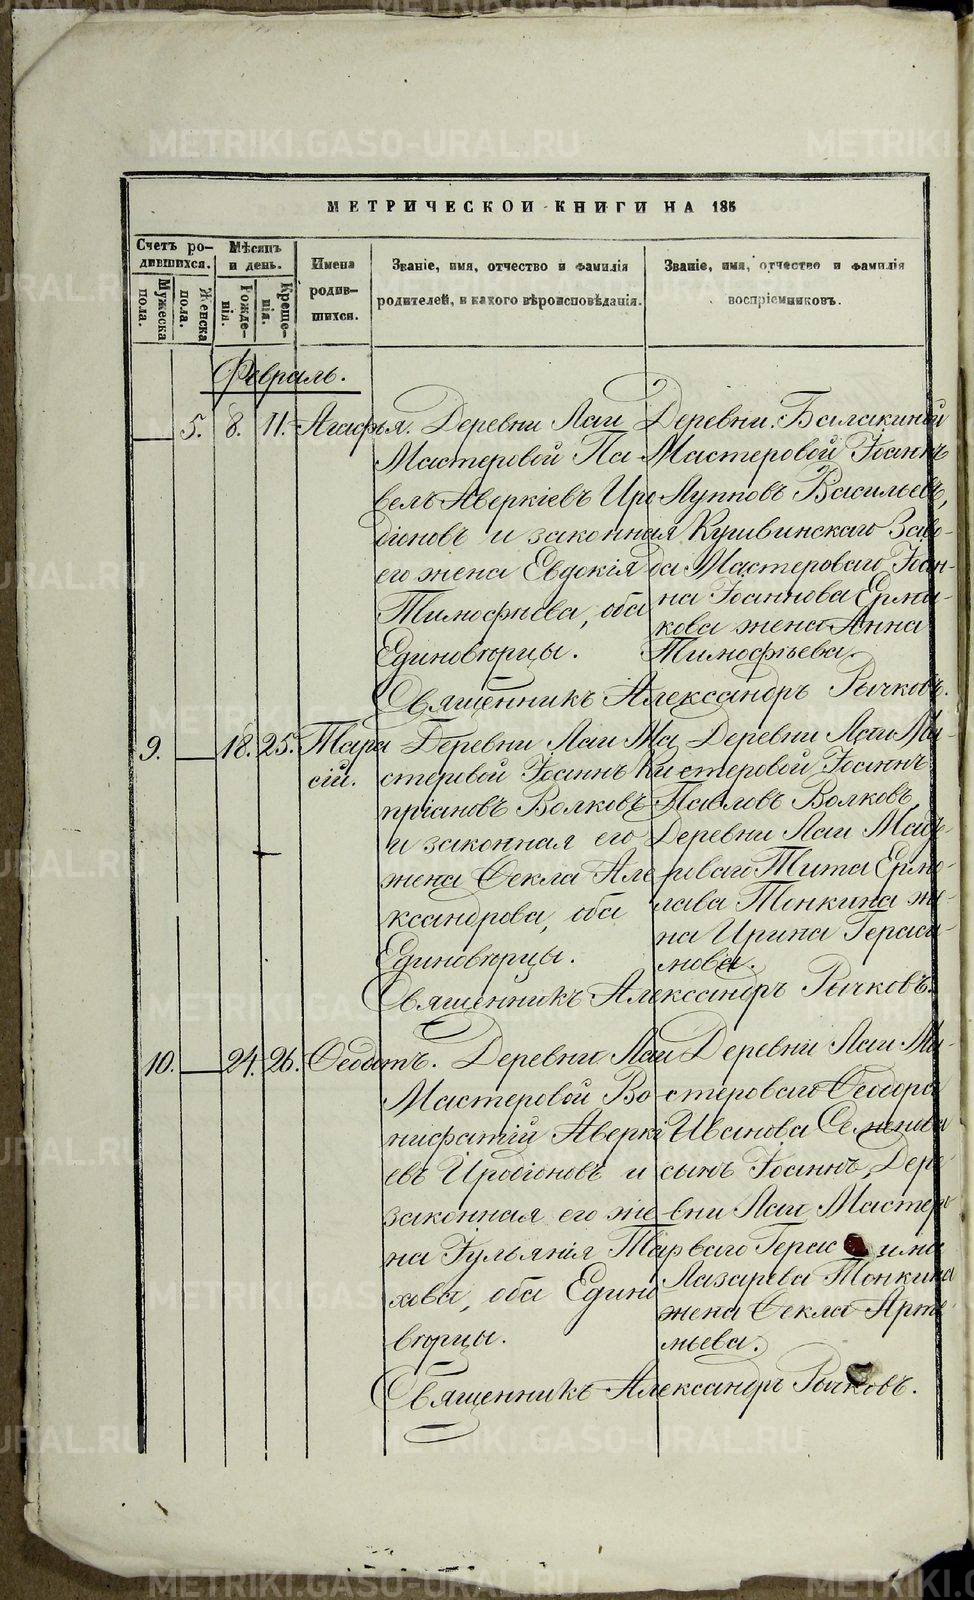 МЕТРИЧЕСКОЙ КНИГИ НА 185
Счетъ ро-
дившихся.
Мужеска
пола.
Женска
пола.
Мѣсяцъ
и день.
Рожде-
нія.
Креще-
нія.
Имена
родив-
шихся.
Званіе, имя, отчество и фамилія
родителей, и какого вѣроисповѣданія.
Званіе, имя, отчество и фамилія
воспріемниковъ.
Февраль.
5. 8. 11. Агафья.
Деревни Лаи
Мастеровой Па
велъ Аверкіевъ Иро
діоновъ и законная
его жена Евдокія
Тимофѣева, оба
Единовѣрцы.
Деревни Балакиной
Мастеровой Іоаннъ
Лупповъ Васильевъ,
Кушвинскаго Заво-
да Мастероваго Іоан-
на Іоаннова Ерма-
кова жена Анна
Тимофѣева.
Священникъ Александръ Рычковъ.
9. 18. 25. Тара
сій.
Деревни Лаи Ма
стеровой Іоаннъ Ки
пріановъ Волковъ
и законная его
жена Ѳекла Але
ксандрова, оба
Единовѣрцы.
Деревни Лаи Ма-
стеровой Іоаннъ
Павловъ Волковъ,
Деревни Лаи Мас
роваго Тита Ермо-
лаева Тонкина же-
на Ирина Гераси-
мова.
Священникъ Александръ Рычковъ.
10. 24. 26. Ѳеодотъ.
Деревни Лаи
Мастеровой Во
нифатій Аверкі
евъ Иродіоновъ и
законная его же
на Іульянія Тара
хова, оба Едино
вѣрцы.
Деревни Лаи Ма-
стероваго Ѳеодора
Иванова Семенова
сынъ Іоаннъ, Дере
вни Лаи Мастеро
ваго Герасима
Лазарева Тонкина
жена Ѳекла Арте-
мьева.
Священникъ Александръ Рычковъ.
METRIKI.GASO-URAL.RU